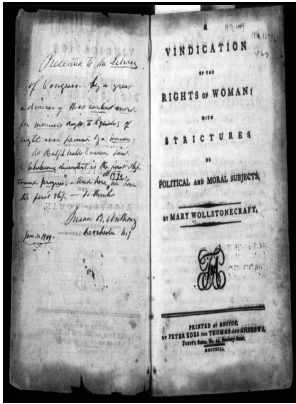 Presented to the Library
of Congress. by a great
admirer of this earliest work
for woman's right to
right ever penned by a woman.
As Ralph Waldo Emerson said,
A wholesome discontent is the first step
toward progress. And here, in
the first step
Susan B. Anthony
Jan. 1, 1904. Rochester N.Y
A
VINDICATION
OF THE
RIGHTS OF WOMAN:
WITH
STRICTURES
ON
POLITICAL AND MORAL SUBJECTS,
BY MARY WOLLSTONECRAFT,
PRINTED AT BOSTON,
BY PETER EDES FOR THOMAS AND ANDREWS,
MDCCXCII.